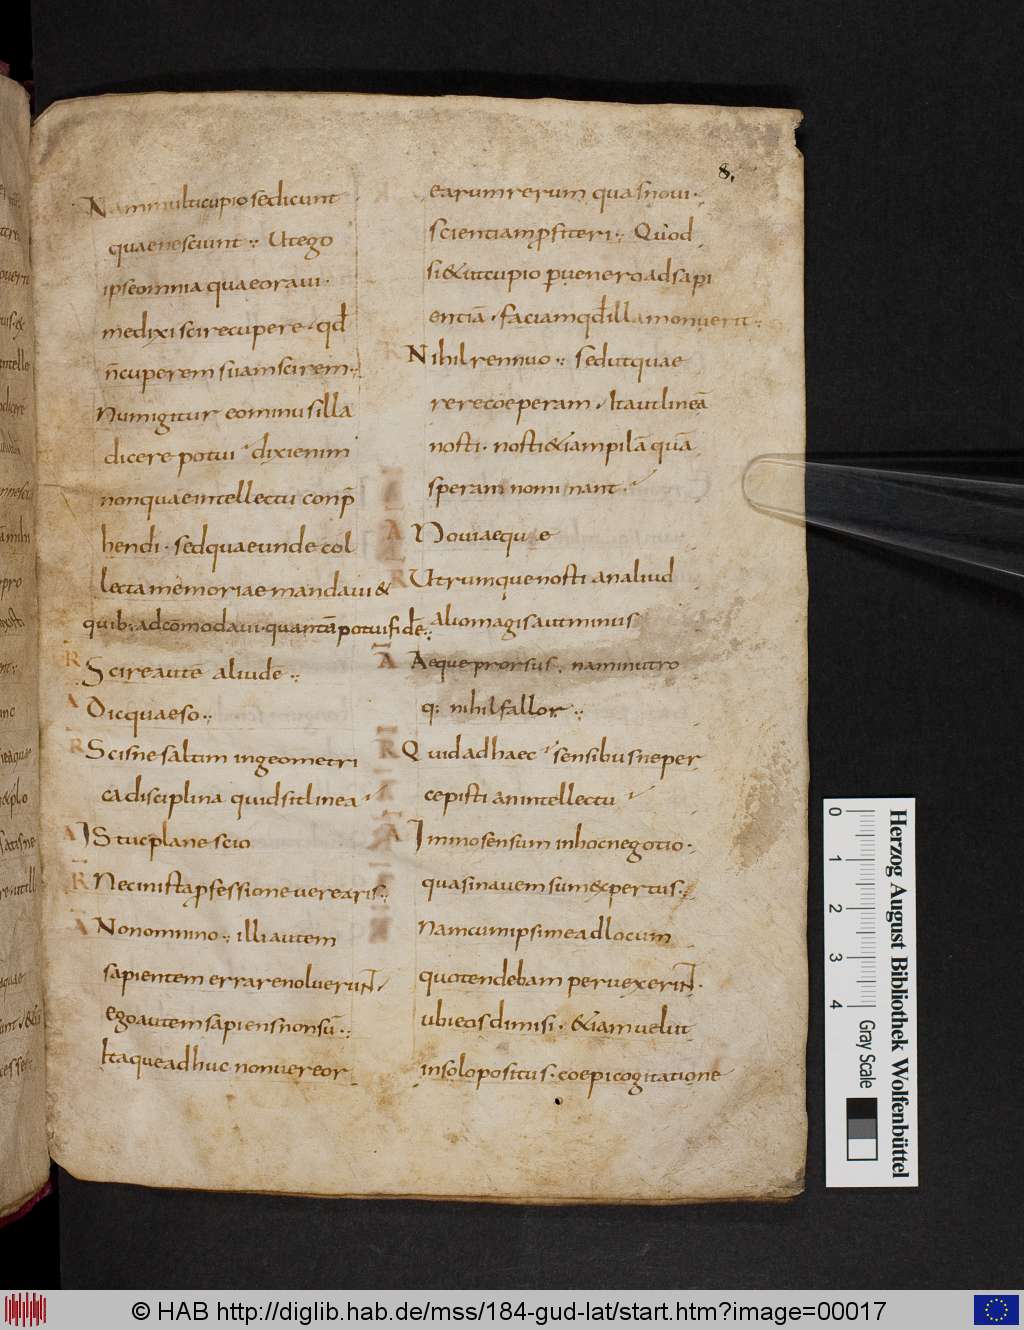 8.
Nammulticupiosedicunt
quaenesciunt :· Utego
ipseomnia quaeoraui·
medixi scirecupere· qđ
ñcuperem siiamscirem·
Numigitur eominusilla
dicere potui · dixienim
nonquaeintellectu conp̄
hendi · sedquaeunde col
lecta memoriae mandaui &
quib; adcōmodaui·quantāpotuifidē:·
R Scire autē aliudē :·
A Dicquaeso·:
R Scisne saltim ingeometri
ca disciplina quidsitlinea·
A IStuc plane scio
R Necinista ꝓfessione uerearis·:
A Nonomnino:· illi autem
sapientem errarenoluerunt
egoautemsapiensnonsū·:
Itaqueadhuc nonuereor
earumrerum quasnoui·
scientiam ꝓfiteri:· Quod
si&utcupio ꝑuenero adsapi
entiā · faciamqđilla monuerit:·
R Nihilrennuo:· sedutquae
rere coeperam · Itautlineā
nosti· nosti&iampilā quā
speram nominant·
A Nouiaequae
R Utrumquenosti analiud
alio magisautminus
A Aequeprorsus· namintro
q: nihilfallor:·
R Quidadhaec · sensibusneper
cepisti anintellectu
A Immosensum inhocnegotio·
quasinauemsumexpertus:·
Namcumipsimeadlocum
quotendebam peruexerint·
ubieosdimisi· &iamuelut
insolopositus· coepicogitatione
Herzog August Bibliothek Wolfenbüttel
0 1 2 3 4 Gray Scale
© HAB http://diglib.hab.de/mss/184-gud-lat/start.htm?image=00017